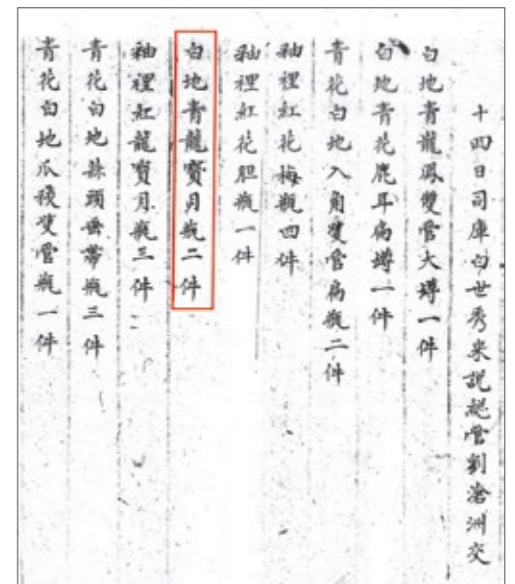 十四日司庫白世秀來說總管劉滄洲交
白地青龍鳳雙管大罇一件
白地青花鹿耳扁罇一件
青花白地八角雙管扁瓶二件
釉裡紅花梅瓶四件
釉裡紅花胆瓶一件
白地青龍寶月瓶二件
釉裡紅龍寶月瓶三件
青花白地蒜頭垂帶瓶三件
青花白地瓜稜雙管瓶一件